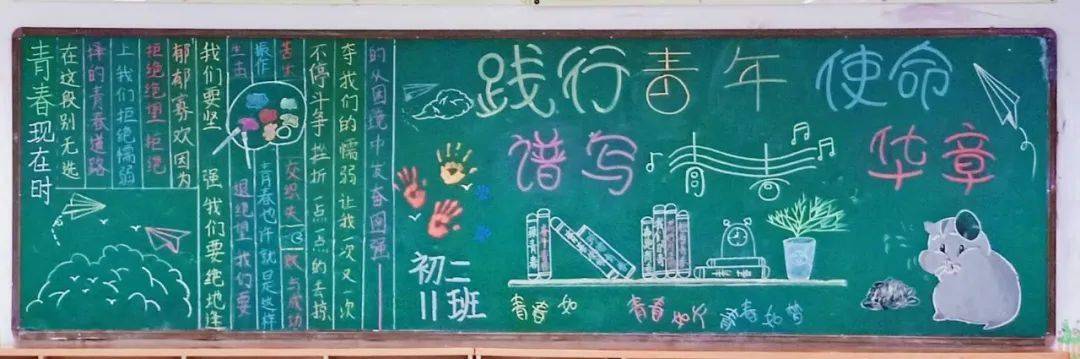 青春现在时
在这段别无选
择的青春道路
上 我们拒绝懦弱
拒绝绝望 拒绝
郁郁寡欢因为
我们要坚强 我们要绝地逢
生去 退绝望 我们要
振作 青春也许就是这样
苦乐交织失败与成功
不停斗争 挫折一点一点的去掠
夺我们的懦弱 让我一次又一次
的从困境中发奋图强
践行青年使命
谱写青春华章
初二
11班
青春如
青春如
青春如